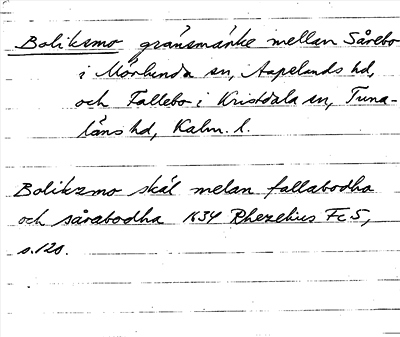 Boliksmo gränsmärke mellan Sårebo
i Mörlunda sn, Aspelands hd,
och Fallebo i Kristdala sn, Tuna-
läns hd, Kalm. l.
Bolikzmo skäl melan fallabodha
och sårabodha 1634 Rhezelius Fc 5,
s. 120.